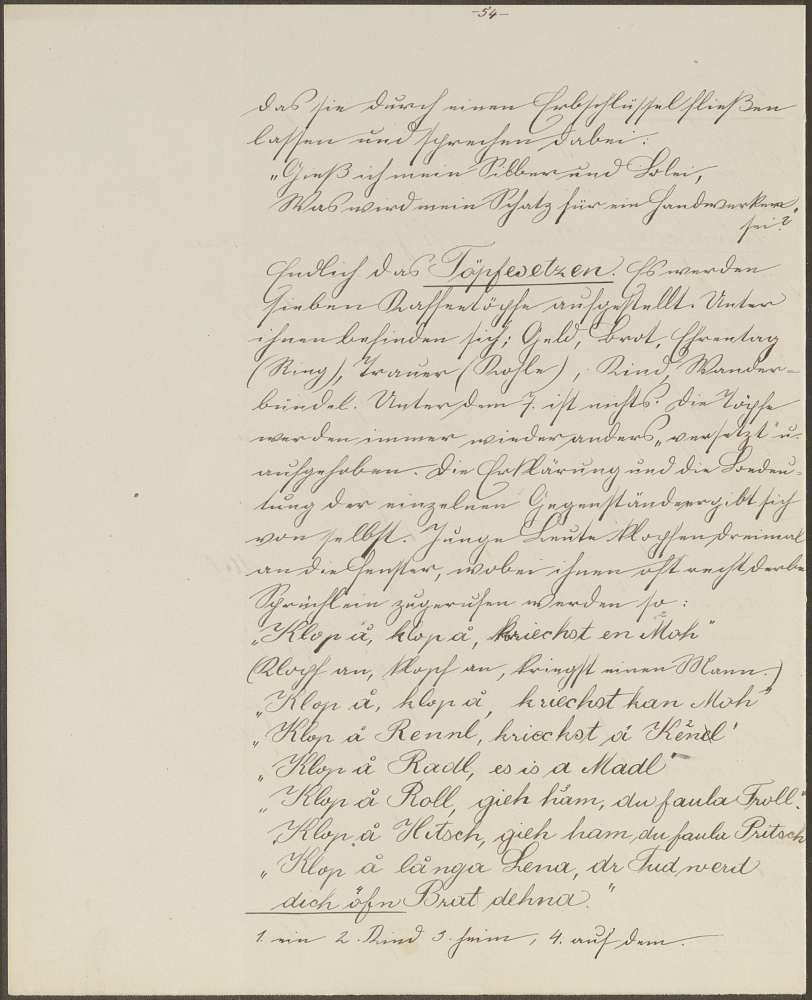 -54-
das sie durch einen Erbschlüssel fließen
lassen und sprechen dabei:
"Gieß ich mein Silber und Blei,
Was wird mein Schatz für ein Handwerker
sei?"
Endlich das Töpfesetzen. Es werden
sieben Kaffeetöpfe aufgestellt. Unter
ihnen befinden sich: Geld, Brot, Ehrentag
(Ring), Trauer (Kohle), Kind, Wander-
bündel. Unter dem 7. ist nichts. Die Töpfe
werden immer wieder anders "versetzt" u.
aufgehoben. Die Erklärung und die Bedeu-
tung der einzelnen Gegenstände ergibt sich
von selbst. Junge Leute klopfen dreimal
an die Fenster, wobei ihnen oft recht derbe
Sprüchlein zugerufen werden so:
"Klop å, klop å, kriechst en Moh"
(Klopf an, klopf an, kriegst einen Mann.)
"Klop å, klop å, kriechst kan Moh"
"Klop å Rennl, kriechst á Kend"
"Klop å Radl, es is a Madl"
"Klop å Roll, gieh ham, du faula Troll."
"Klop å Hitsch, gieh ham, du faula Pritsch
"Klop å långa Lena, dr Tud werd
dich öfn Brat dehna."
1. ein 2. Kind 3. heim, 4. auf dem.